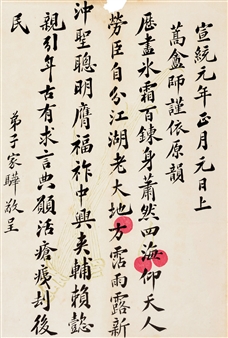 宣統元年正月元日上
蒿盦師謹依原韻
歷盡冰霜百鍊身蕭然四海仰天人
勞臣自分江湖老大地方霑雨露新
沖聖聰明膺福祚中興夾輔賴懿
親引年古有求言典願活瘡痍刦後
民
弟子家驊敬呈